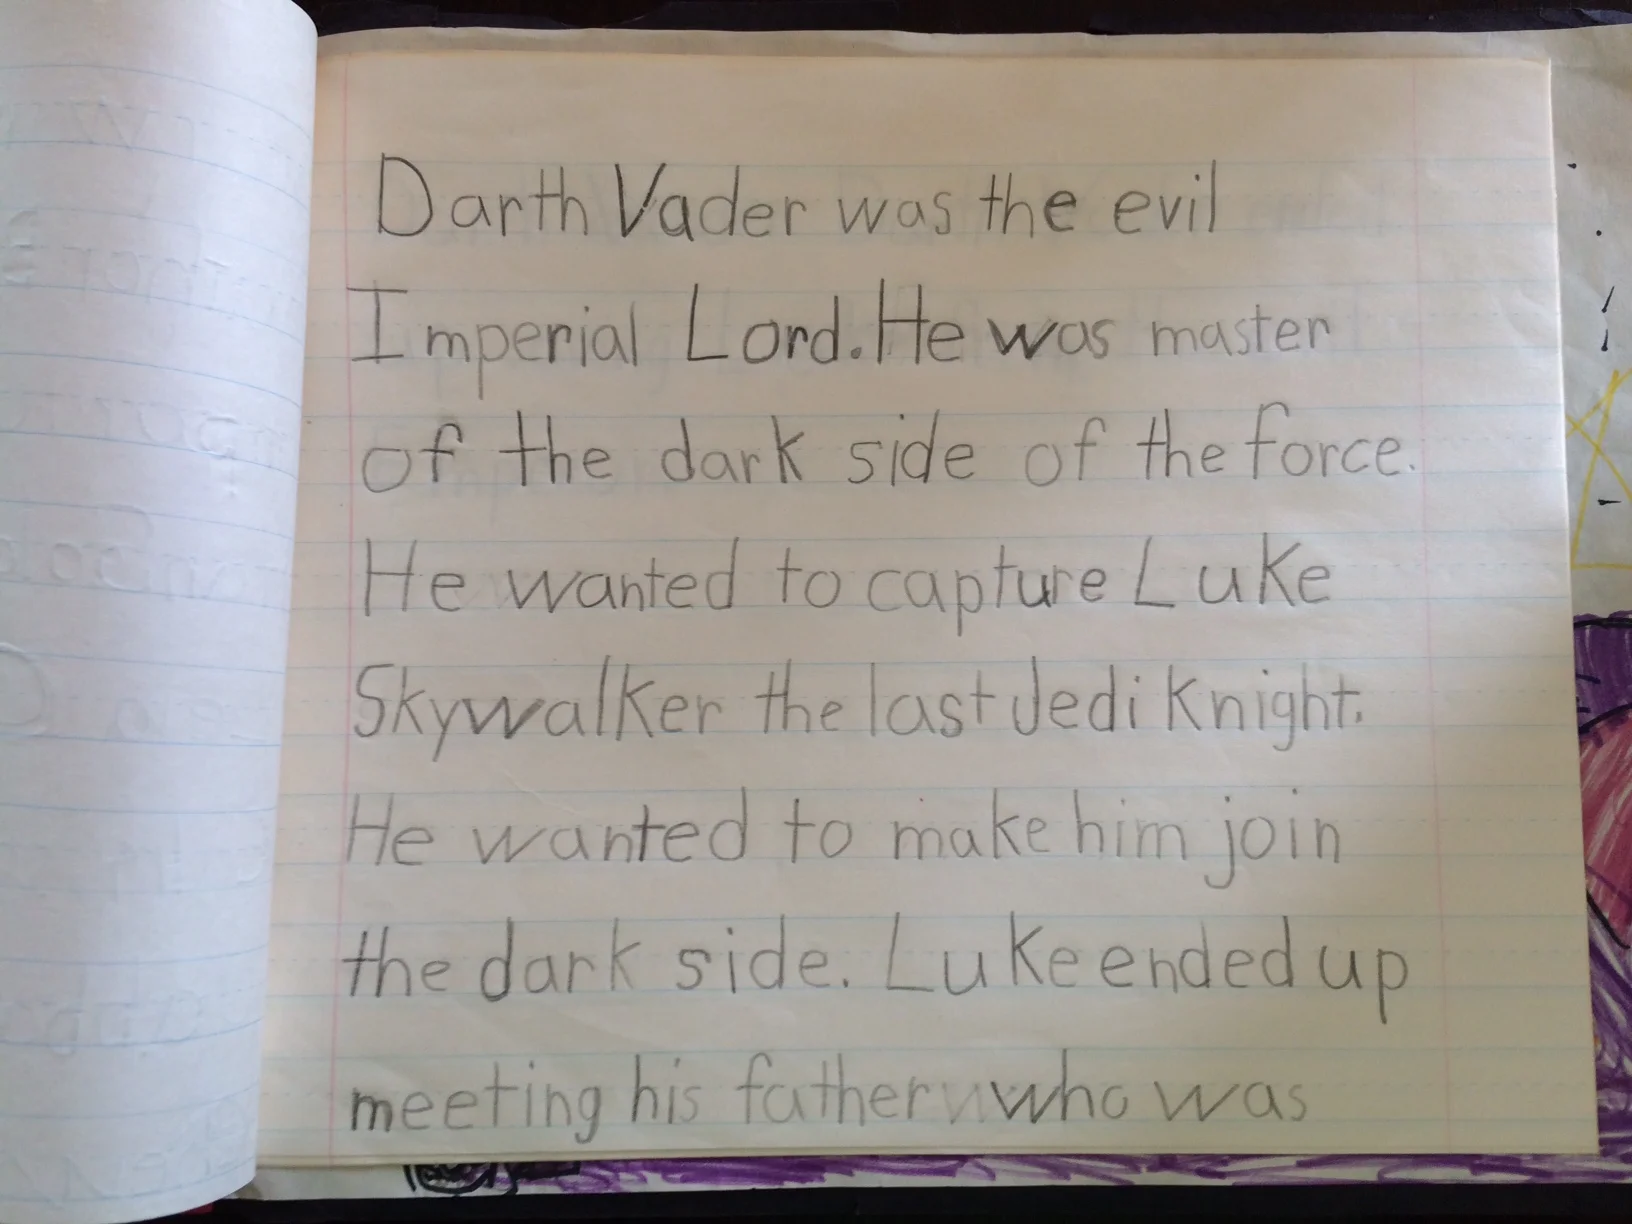 Darth Vader was the evil
Imperial Lord. He was master
of the dark side of the force.
He wanted to capture Luke
Skywalker the last Jedi Knight.
He wanted to make him join
the dark side. Luke ended up
meeting his father who was